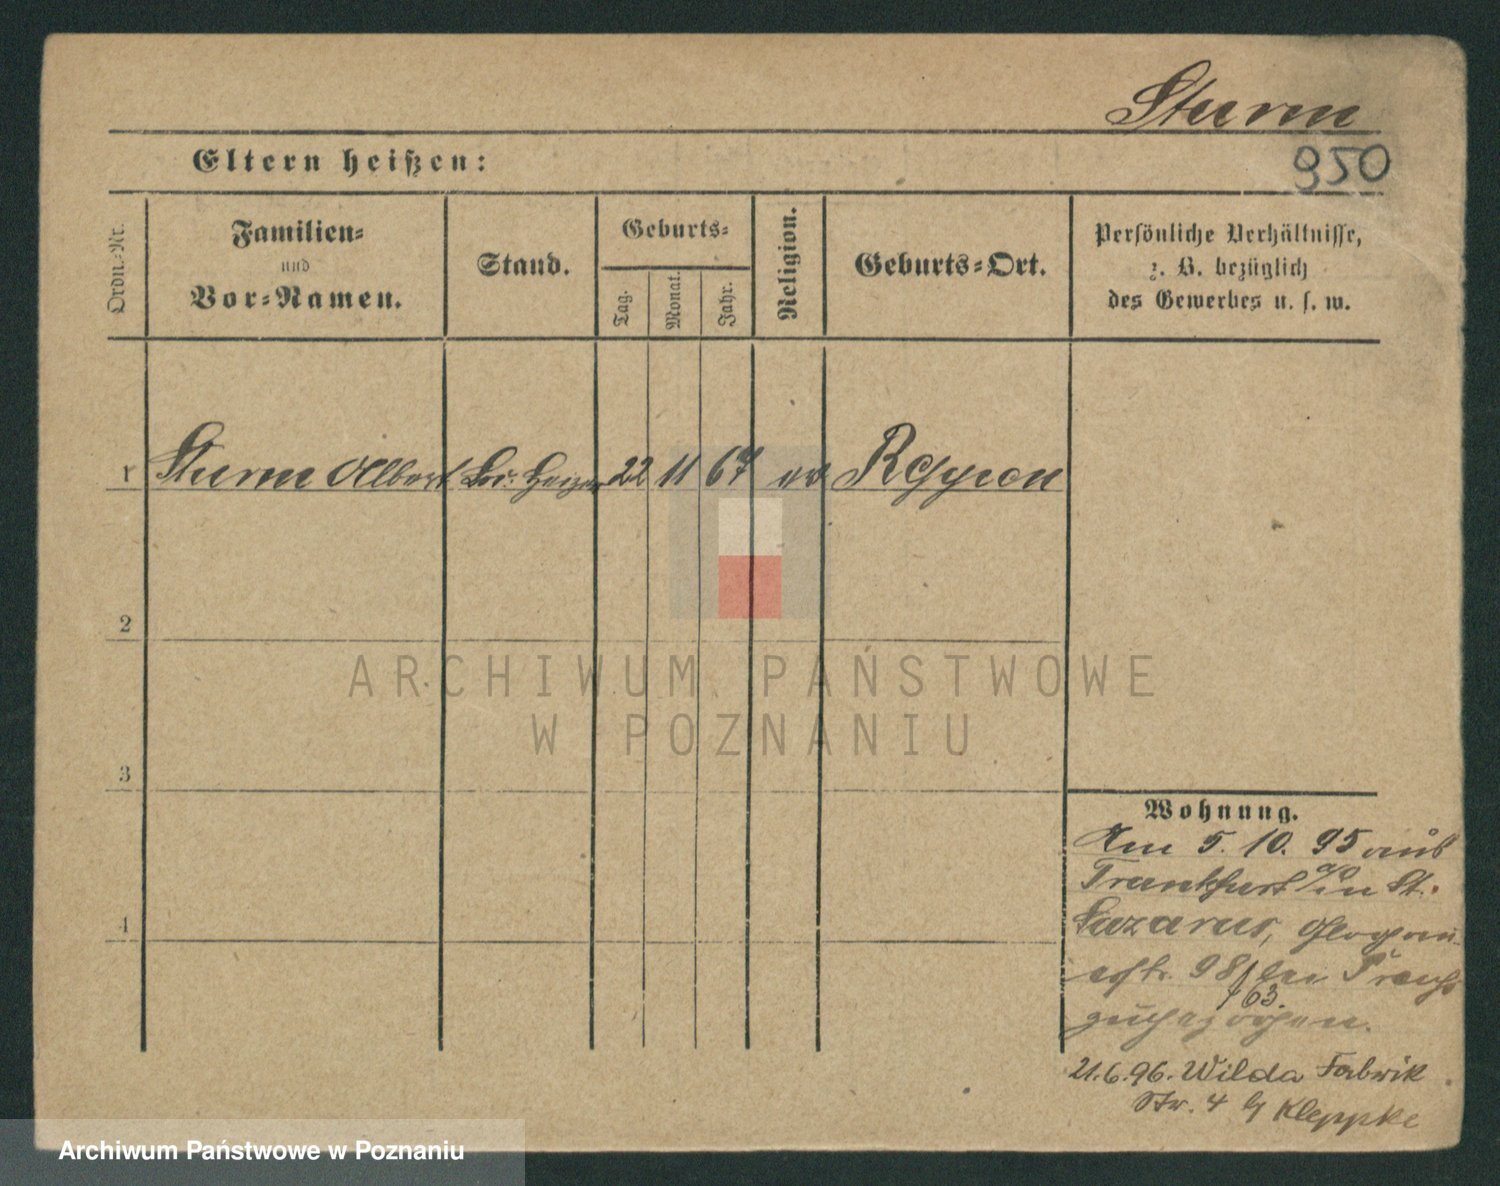 Sturm
Eltern heißen:
950
Ordn.-Nr.
Familien-
und
Vor-Namen.
Stand.
Geburts-
Tag.
Monat.
Jahr.
Religion.
Geburts-Ort.
Persönliche Verhältnisse,
z. B. bezüglich
des Gewerbes u. s. w.
1 Sturm Albert Heizer 22 11 67 ev
2
3
4
Wohnung.
Am 5. 10. 95 aus
Frankfurt a/O in St.
Lazarus, Glogau-
erstr. 98/ bei
103.
zugezogen.
21.6.96. Wilda Fabrik
Str. 4 b/ Kleppke
ARCHIWUM PAŃSTWOWE
W POZNANIU
Archiwum Państwowe w Poznaniu